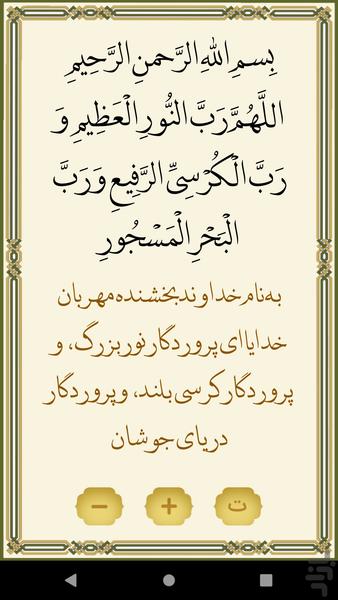 بِسمِ اللهِ الرَّحمنِ الرَّحِیمِ
اللَّهُمَّ رَبَّ النُّورِ الْعَظِیمِ وَ
رَبَّ الْكُرْسِيِّ الرَّفِیعِ وَ رَبَّ
الْبَحْرِ الْمَسْجُورِ
به نام خداوند بخشنده مهربان
خدایا ای پروردگار نور بزرگ، و
پروردگار کرسی بلند، و پروردگار
دریای جوشان
ت + −
بازار